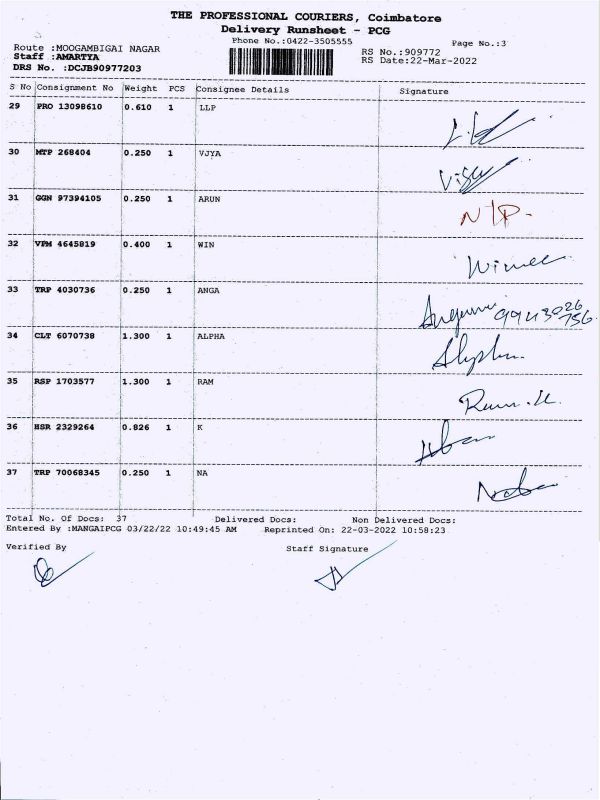 THE PROFESSIONAL COURIERS, Coimbatore
Delivery Runsheet - PCG
Phone No.:0422-3505555
Page No.:3
Route :MOOGAMBIGAI NAGAR
RS No.:909772
Staff :AMARTYA
RS Date:22-Mar-2022
DRS No. :DCJB90977203
S No Consignment No Weight PCS Consignee Details Signature
29 PRO 13098610 0.610 1 LLP
30 MTP 268404 0.250 1 VJYA
31 GGN 97394105 0.250 1 ARUN N/P-
32 VPM 4645819 0.400 1 WIN
33 TRP 4030736 0.250 1 ANGA
34 CLT 6070738 1.300 1 ALPHA
35 RSP 1703577 1.300 1 RAM
36 HSR 2329264 0.826 1 K
37 TRP 70068345 0.250 1 NA
Total No. Of Docs: 37 Delivered Docs: Non Delivered Docs:
Entered By :MANGAIPCG 03/22/22 10:49:45 AM Reprinted On: 22-03-2022 10:58:23
Verified By Staff Signature